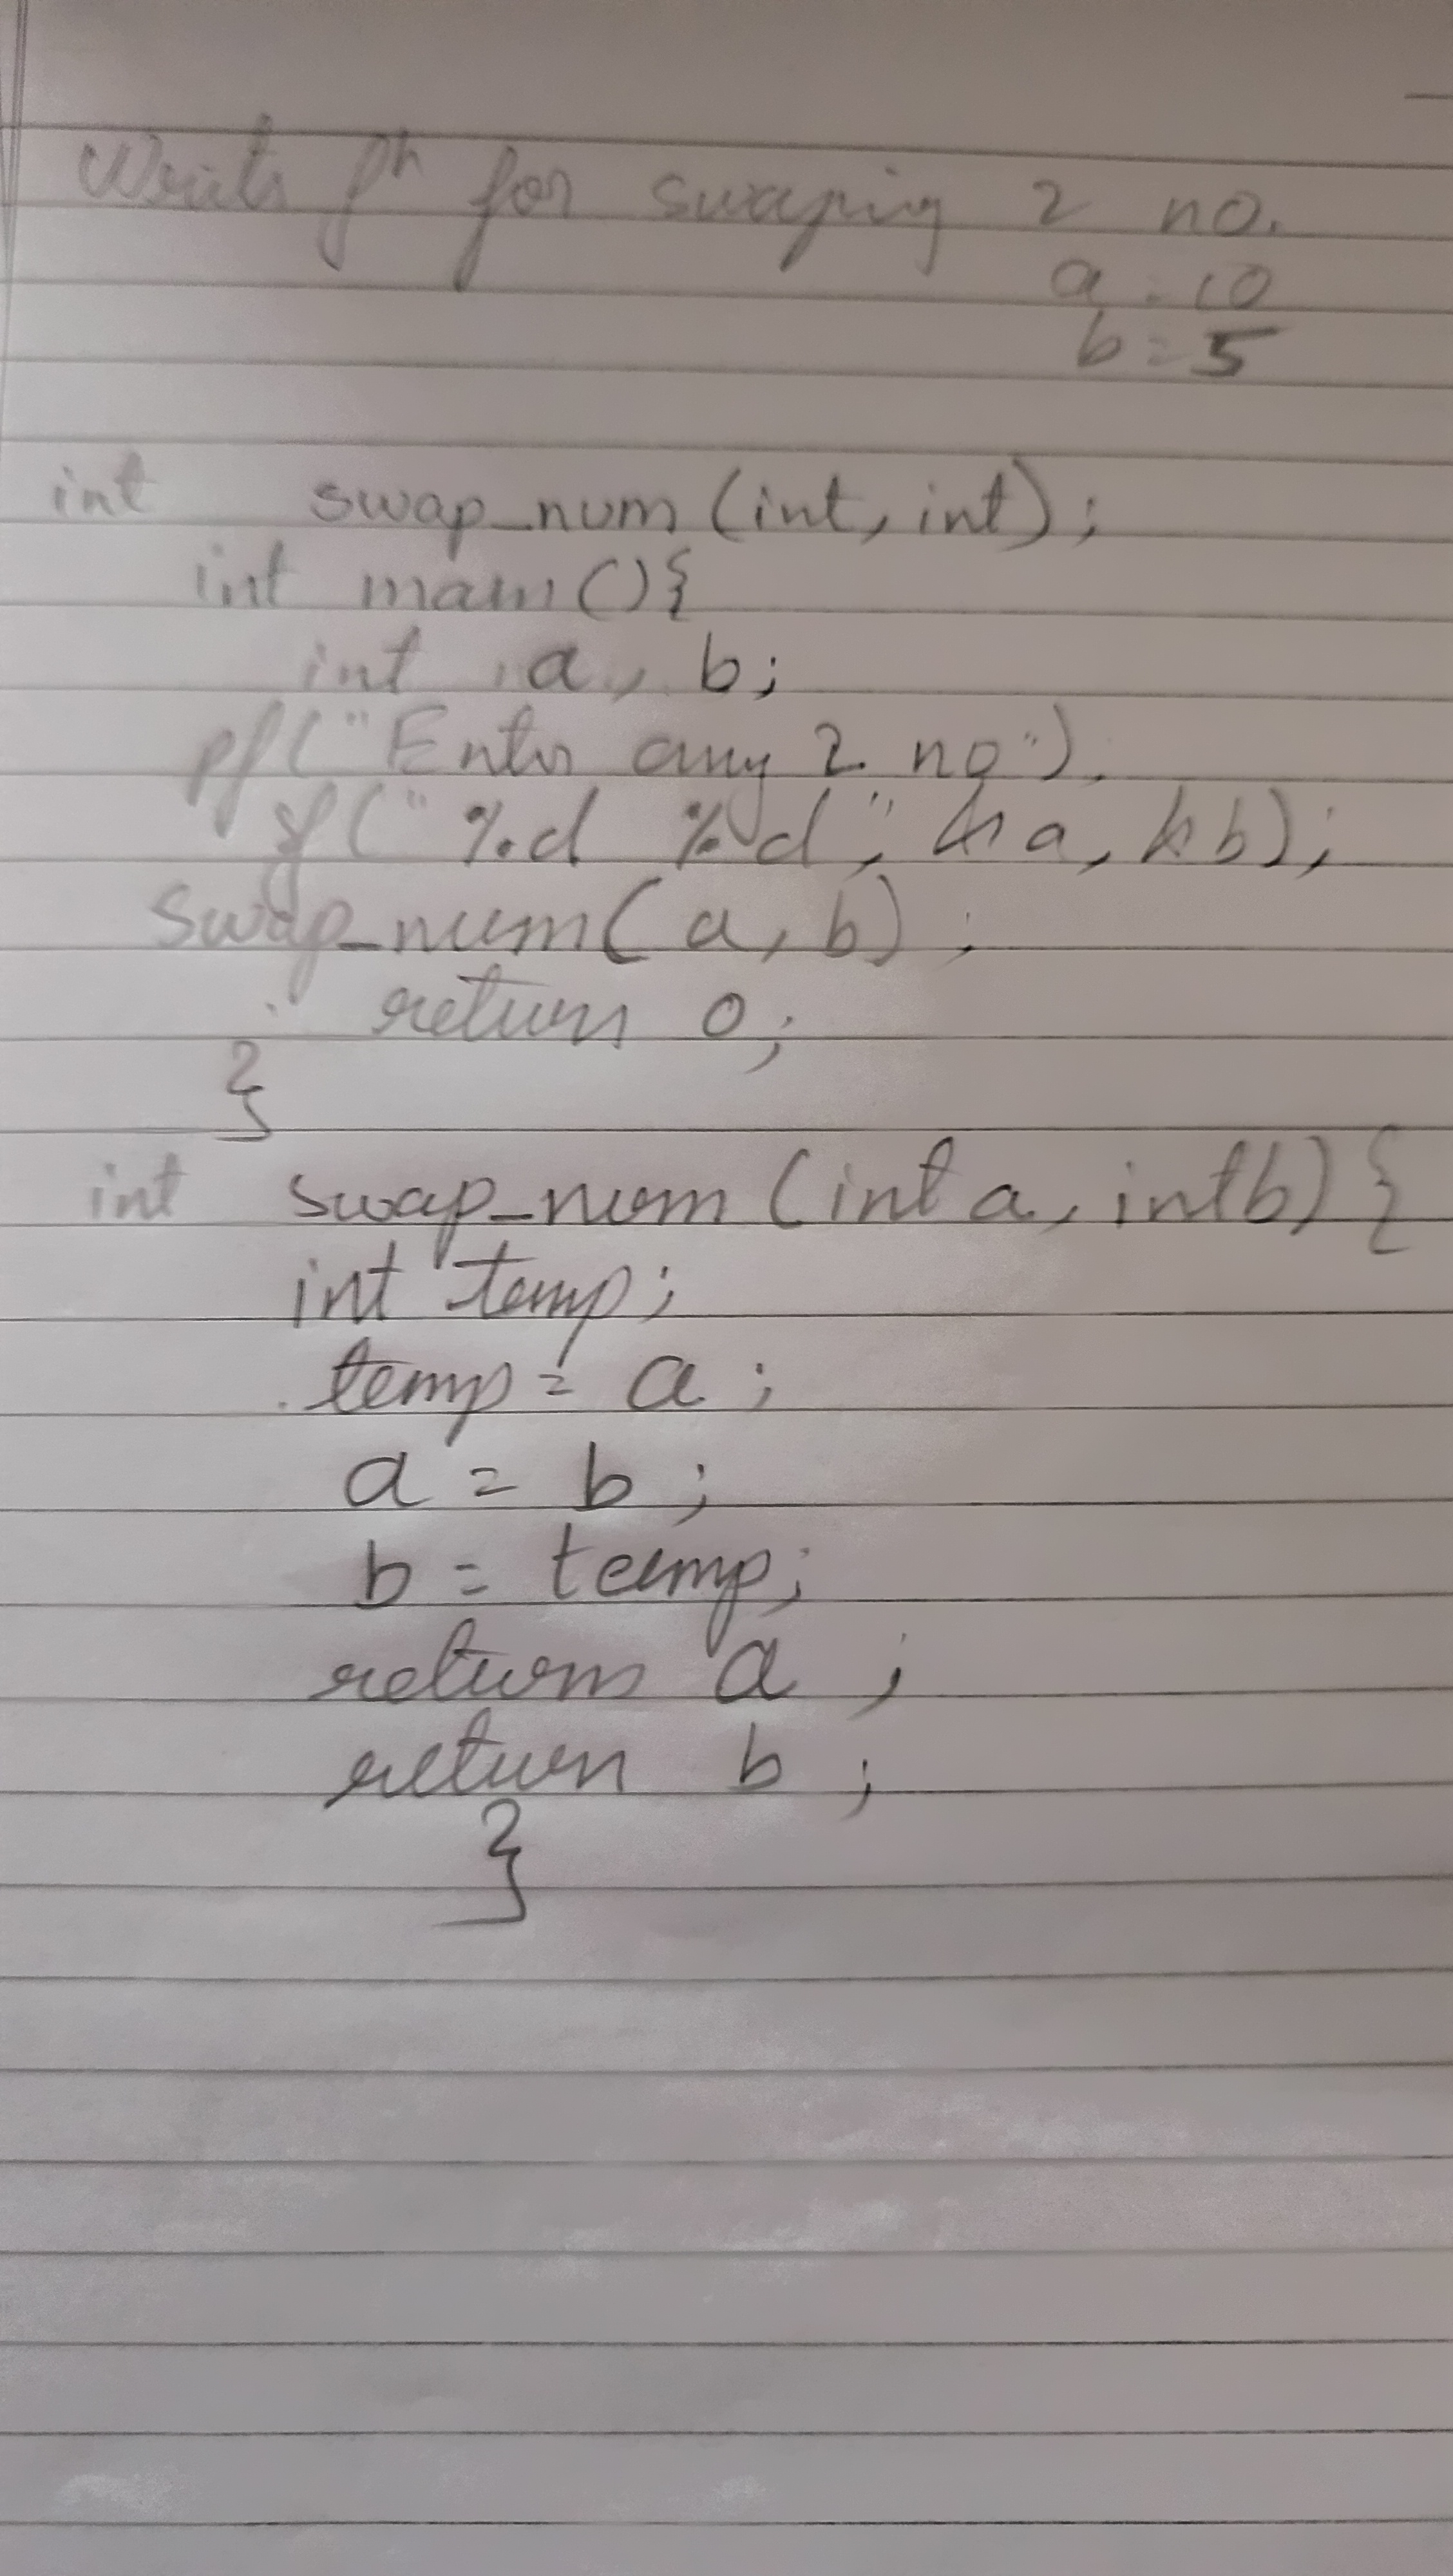 Write fn for swaping 2 no.
a = 10
b = 5
int swap_num (int, int);
int main () {
int a, b;
pf ("Enter any 2 no");
sf (" %d %d ", &a, &b);
swap_num ( a, b) ;
return 0;
}
int swap_num (int a, int b) {
int temp;
temp = a ;
a = b ;
b = temp;
return a ;
return b ;
}